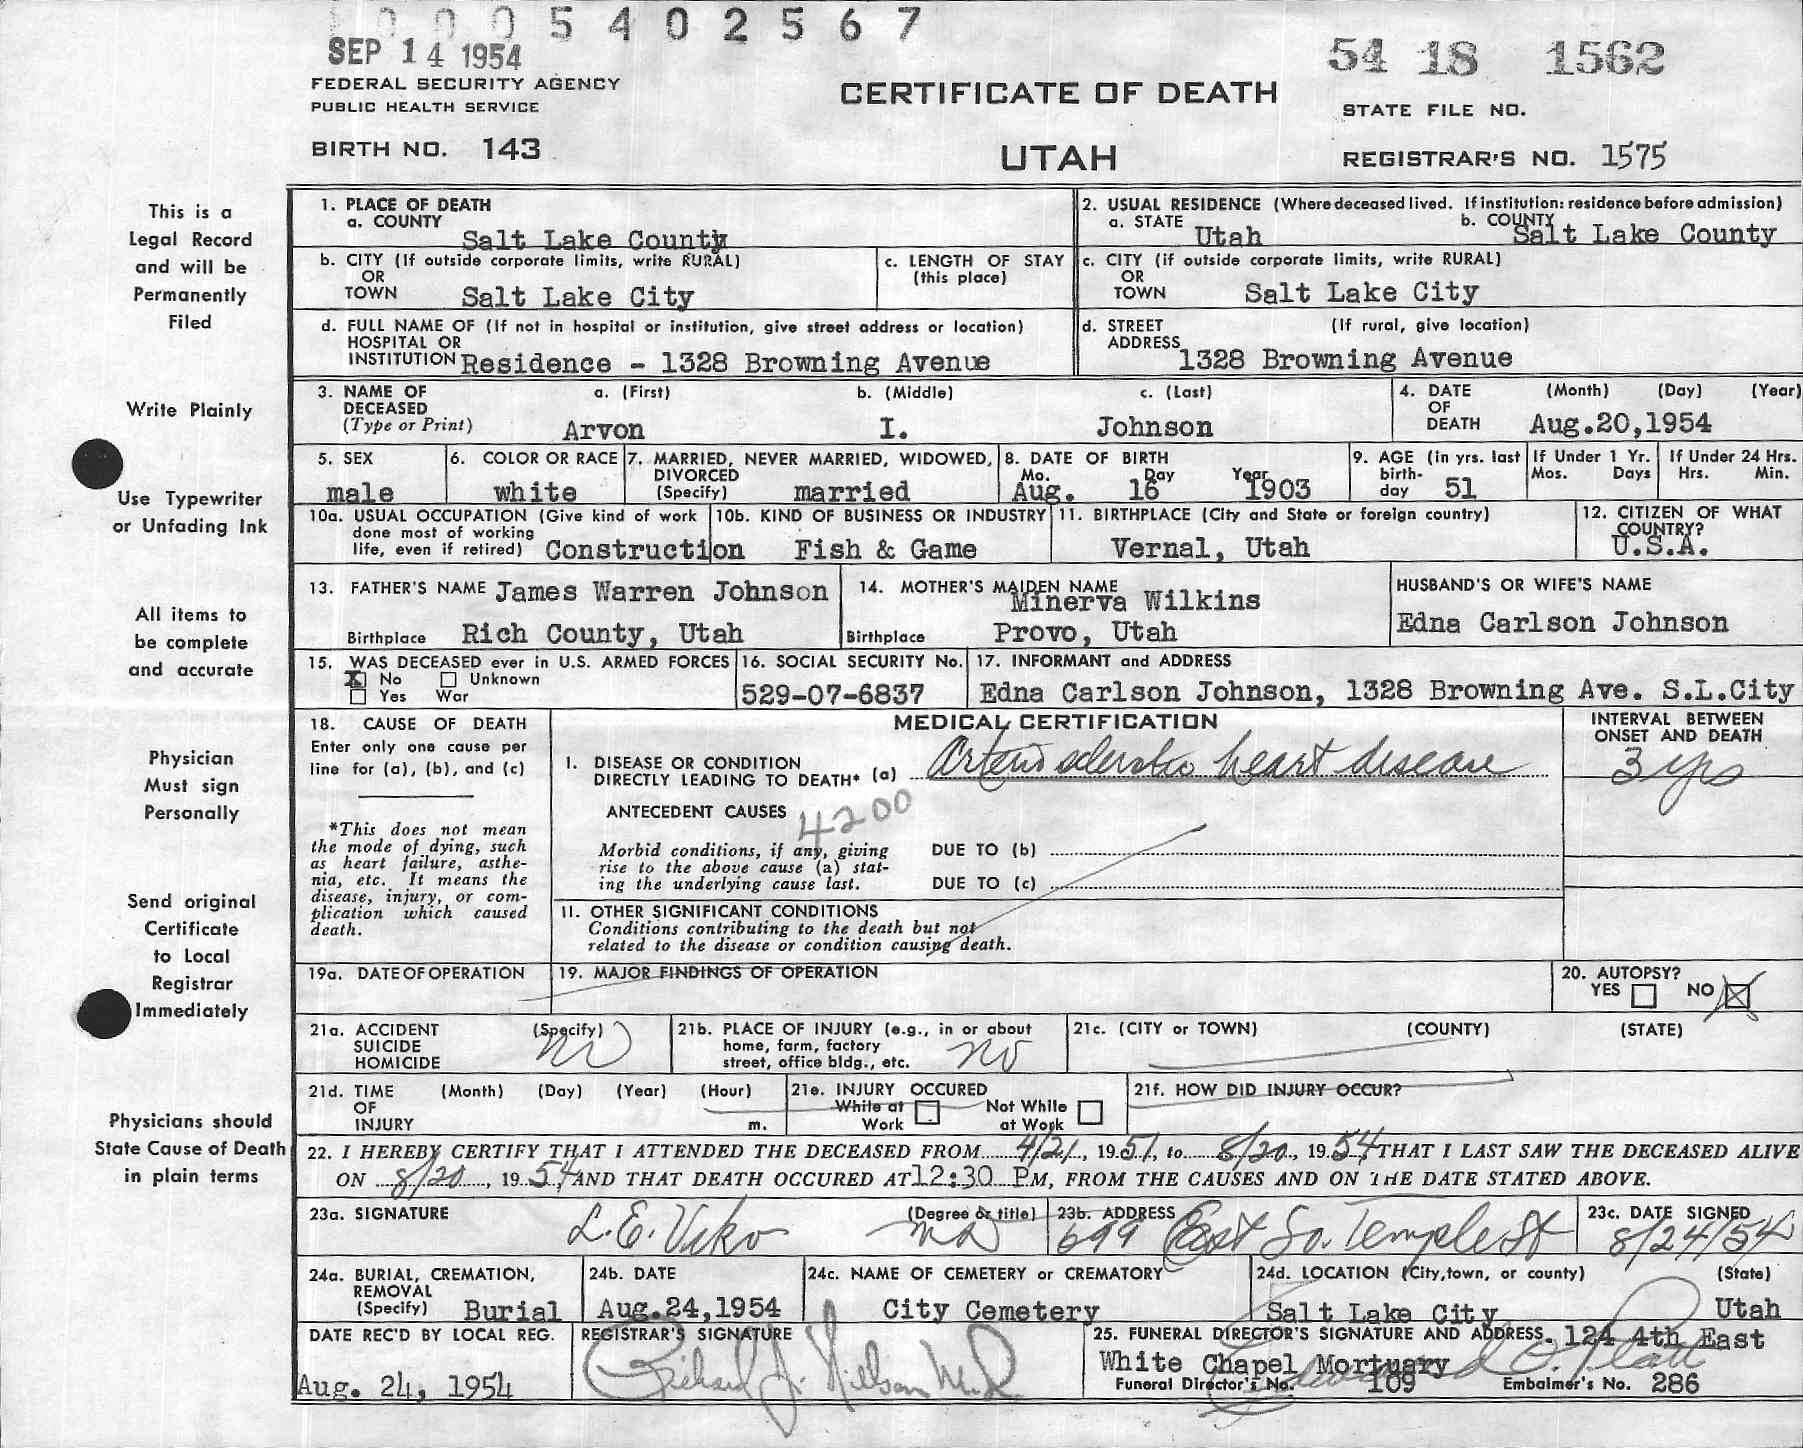 0005402567
SEP 14 1954
54 18 1562
FEDERAL SECURITY AGENCY
PUBLIC HEALTH SERVICE
CERTIFICATE OF DEATH
STATE FILE NO.
BIRTH NO. 143
UTAH
REGISTRAR'S NO. 1575
This is a
Legal Record
and will be
Permanently
Filed
Write Plainly
Use Typewriter
or Unfading Ink
All items to
be complete
and accurate
Physician
Must sign
Personally
Send original
Certificate
to Local
Registrar
Immediately
Physicians should
State Cause of Death
in plain terms
1. PLACE OF DEATH
a. COUNTY Salt Lake County
2. USUAL RESIDENCE (Where deceased lived. If institution: residence before admission)
a. STATE Utah b. COUNTY Salt Lake County
b. CITY (If outside corporate limits, write RURAL)
OR
TOWN Salt Lake City
c. LENGTH OF STAY
(this place)
c. CITY (if outside corporate limits, write RURAL)
OR
TOWN Salt Lake City
d. FULL NAME OF (If not in hospital or institution, give street address or location)
HOSPITAL OR
INSTITUTION Residence - 1328 Browning Avenue
d. STREET (If rural, give location)
ADDRESS 1328 Browning Avenue
3. NAME OF a. (First) b. (Middle) c. (Last)
DECEASED
(Type or Print) Arvon I. Johnson
4. DATE (Month) (Day) (Year)
OF
DEATH Aug.20,1954
5. SEX
male
6. COLOR OR RACE
white
7. MARRIED, NEVER MARRIED, WIDOWED,
DIVORCED
(Specify) married
8. DATE OF BIRTH
Mo. Day Year
Aug. 16 1903
9. AGE (in yrs. last
birth-
day 51
If Under 1 Yr.
Mos. Days
If Under 24 Hrs.
Hrs. Min.
10a. USUAL OCCUPATION (Give kind of work
done most of working
life, even if retired) Construction
10b. KIND OF BUSINESS OR INDUSTRY
Fish & Game
11. BIRTHPLACE (City and State or foreign country)
Vernal, Utah
12. CITIZEN OF WHAT
COUNTRY?
U.S.A.
13. FATHER'S NAME James Warren Johnson
Birthplace Rich County, Utah
14. MOTHER'S MAIDEN NAME
Minerva Wilkins
Birthplace Provo, Utah
HUSBAND'S OR WIFE'S NAME
Edna Carlson Johnson
15. WAS DECEASED ever in U.S. ARMED FORCES
X No Unknown
Yes War
16. SOCIAL SECURITY No.
529-07-6837
17. INFORMANT and ADDRESS
Edna Carlson Johnson, 1328 Browning Ave. S.L.City
18. CAUSE OF DEATH
Enter only one cause per
line for (a), (b), and (c)
*This does not mean
the mode of dying, such
as heart failure, asthe-
nia, etc. It means the
disease, injury, or com-
plication which caused
death.
MEDICAL CERTIFICATION
INTERVAL BETWEEN
ONSET AND DEATH
I. DISEASE OR CONDITION
DIRECTLY LEADING TO DEATH* (a) Arteriosclerotic heart disease
3 yrs
ANTECEDENT CAUSES 4200
Morbid conditions, if any, giving
rise to the above cause (a) stat-
ing the underlying cause last.
DUE TO (b)
DUE TO (c)
II. OTHER SIGNIFICANT CONDITIONS
Conditions contributing to the death but not
related to the disease or condition causing death.
19a. DATE OF OPERATION
19. MAJOR FINDINGS OF OPERATION
20. AUTOPSY?
YES NO X
21a. ACCIDENT (Specify)
SUICIDE
HOMICIDE no
21b. PLACE OF INJURY (e.g., in or about
home, farm, factory
street, office bldg., etc. no
21c. (CITY or TOWN) (COUNTY) (STATE)
21d. TIME (Month) (Day) (Year) (Hour)
OF
INJURY m.
21e. INJURY OCCURED
While at Work
Not While at Work
21f. HOW DID INJURY OCCUR?
22. I HEREBY CERTIFY THAT I ATTENDED THE DECEASED FROM 4/21, 1951, to 8/20, 1954 THAT I LAST SAW THE DECEASED ALIVE
ON 8/20, 1954 AND THAT DEATH OCCURED AT 12:30 P.M, FROM THE CAUSES AND ON THE DATE STATED ABOVE.
23a. SIGNATURE (Degree or title)
L.E. Viko MD
23b. ADDRESS
699 East So. Temple St
23c. DATE SIGNED
8/24/54
24a. BURIAL, CREMATION,
REMOVAL
(Specify) Burial
24b. DATE
Aug.24,1954
24c. NAME OF CEMETERY or CREMATORY
City Cemetery
24d. LOCATION (City,town, or county) (State)
Salt Lake City Utah
DATE REC'D BY LOCAL REG.
Aug. 24, 1954
REGISTRAR'S SIGNATURE
Richard J. Nielson M.D.
25. FUNERAL DIRECTOR'S SIGNATURE AND ADDRESS. 124 4th East
White Chapel Mortuary
Funeral Director's No. 109 Embalmer's No. 286